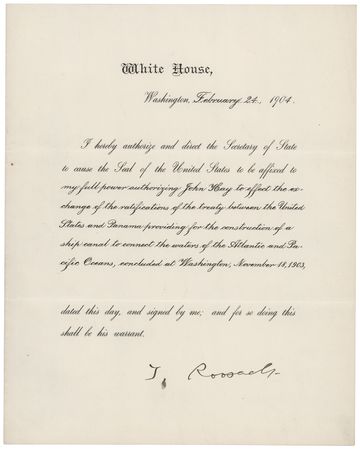 White House,
Washington, February 24, 1904.
I hereby authorize and direct the Secretary of State
to cause the Seal of the United States to be affixed to
my full power authorizing John Hay to effect the ex-
change of the ratifications of the treaty between the United
States and Panama providing for the construction of a
ship canal to connect the waters of the Atlantic and Pa-
cific Oceans, concluded at Washington, November 18, 1903,
dated this day, and signed by me; and for so doing this
shall be his warrant.
T. Roosevelt